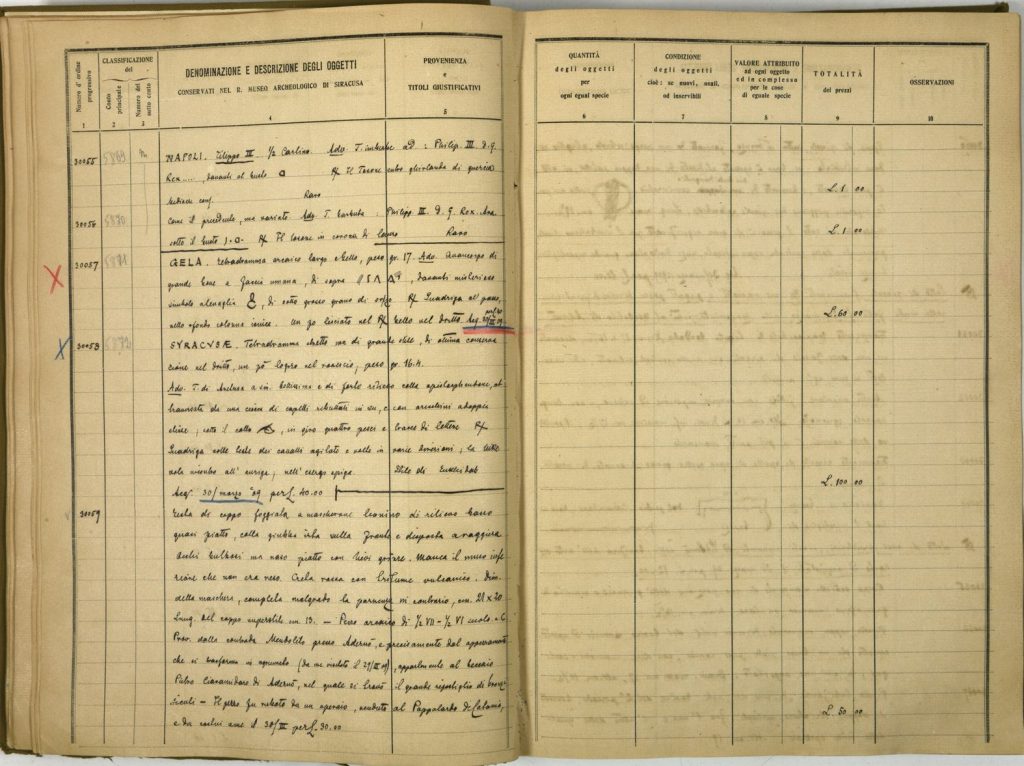 Numero d'ordine progressivo
1
CLASSIFICAZIONE
del
Conto principale
2
Numero del sotto conto
3
DENOMINAZIONE E DESCRIZIONE DEGLI OGGETTI
CONSERVATI NEL R. MUSEO ARCHEOLOGICO DI SIRACUSA
4
PROVENIENZA
e
TITOLI GIUSTIFICATIVI
5
QUANTITÀ
degli oggetti
per
ogni egual specie
6
CONDIZIONE
degli oggetti
cioè: se nuovi, usati,
od inservibili
7
VALORE ATTRIBUITO
ad ogni oggetto
ed in complesso
per le cose
di eguale specie
8
TOTALITÀ
dei prezzi
9
OSSERVAZIONI
10
30055 5869 NAPOLI. Filippo II ½ Carlino. Adv. T. : Philip. III. D. G.
Rex ....., davanti al busto R/ Il Tosone entro ghirlanda di quercia
Raro
L. 1 00
30056 5870 Come il precedente, ma variato Adv. T. barbuta : Philipp III D. G. Rex. Ara
sotto il busto R/ Il tosone in corona di lauro Raro
L. 1 00
30057 5871 GELA. Tetradramma arcaico largo e bello, peso gr. 17. Adv. Avancorpo di
grande bove a faccia umana, di sopra davanti misterioso
simbolo, di sotto grosso grano di orzo R/ Quadriga al passo,
nello sfondo colonna ionica. Un po lisciato nel R/ bello nel dritto Acq.
L. 60 00
30058 5872 SYRACVSÆ. Tetradramma stretto ma di grande stile, di ottima conserva
zione nel dritto, un pò logoro nel rovescio; peso gr. 16.4
Adv. T. di Aretusa a sin. bellissima e di forte rilievo colla
da una di capelli ributtati in su, e con orecchini
; sotto il collo , in giro quattro pesci e tracce di lettere R/
Quadriga colle teste dei cavalli agitate e volte in varie direzioni; la
vola incontro all' auriga; nell' exergo spiga. Stile di
Acq. 30/marzo '09 per L. 40.00
L. 100 00
30059 Testa di coppo foggiata a mascherone leonino di rilievo basso
quasi piatto, colla giubba irta sulla fronte e disposta a raggiera
Occhi bulbosi ma naso piatto con lievi grinze. Manca il muso infe
riore che non era reso. Creta rossa con tritume vulcanico. Dim.
della maschera, completa malgrado la parvenza in contrario, cm. 21 x 20
Lung. del coppo superstite cm 13. – Pezzo arcaico di ½ VII – ½ VI secolo a. C.
Prov. dalla contrada Mendolito presso Adernò, e precisamente dal appezzamento
che si trasforma in agrumeto (da me visitato il 29/III 09), appartenente al
Pietro Ciaramidaro di Adernò, nel quale si trovò il grande ripostiglio di bronzi
siculi – Il pezzo fu rubato da un operaio, venduto al Pappalardo di Catania,
e da costui a me il 30/III per L. 30.00
L. 50 00